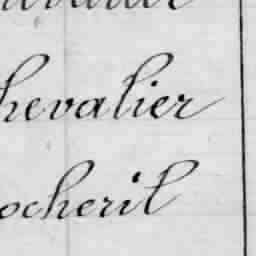 hevalier
ocheril